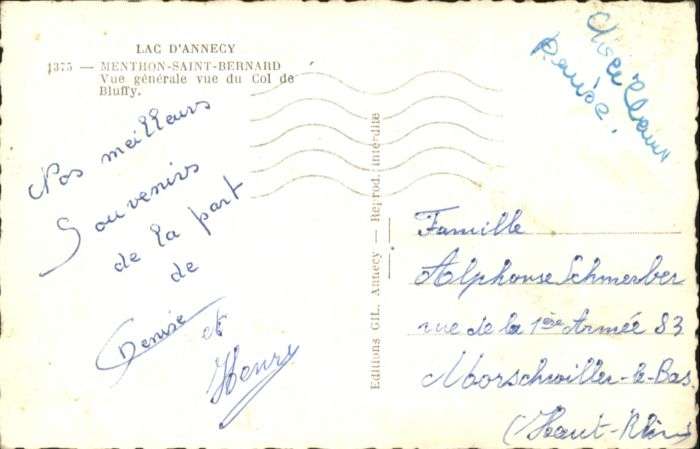 LAC D'ANNECY
1375 — MENTHON-SAINT-BERNARD
Vue générale vue du Col de
Bluffy.
Nos meilleurs
Souvenirs
de la part
de
Denise
et
Henry
Editions GIL. Annecy — Reprod. interdite
Denise.
Famille
Alphonse Schmerber
rue de la 1ère Armée 83
Morschwiller-le-Bas.
(Haut-Rhin)